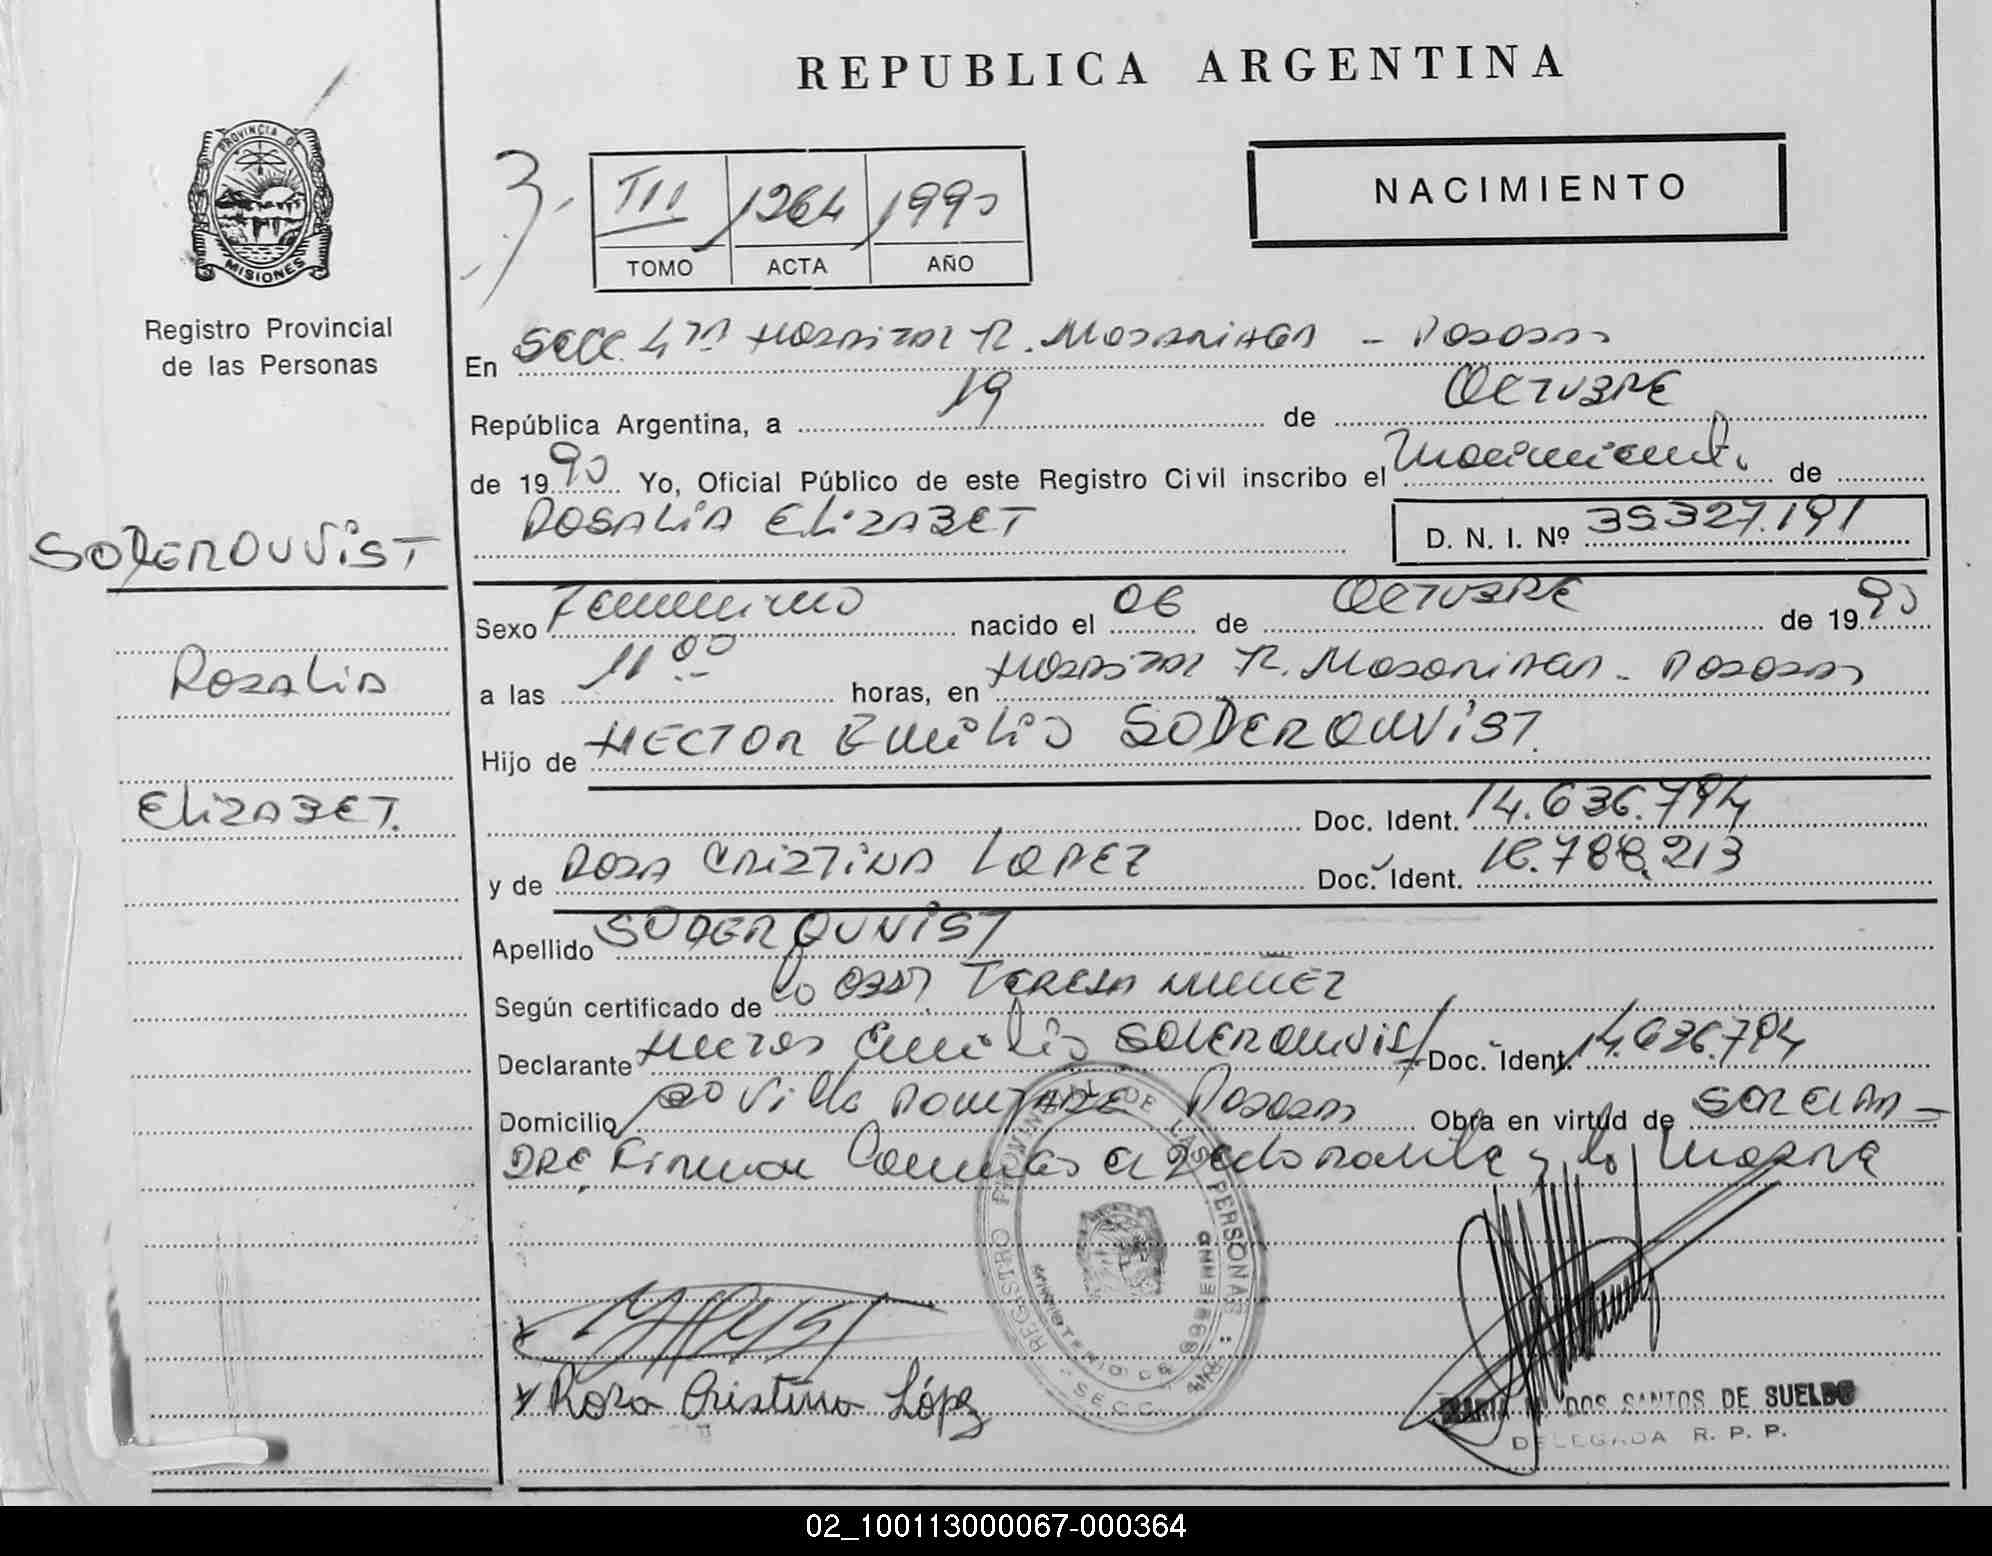 REPUBLICA ARGENTINA
PROVINCIA DE
MISIONES
Registro Provincial
de las Personas
NACIMIENTO
III 1264 1990
TOMO ACTA AÑO
En Secc. 4ta Hospital R. Madariaga - Posadas
República Argentina, a 19 de OCTUBRE
de 1990 Yo, Oficial Público de este Registro Civil inscribo el Nacimiento de
ROSALIA ELIZABET
D. N. I. Nº 35.327.191
SODERQUVIST
Rosalia
ELIZABET.
Sexo Femenino nacido el 06 de OCTUBRE de 1990
a las 11 00 horas, en Hospital R. Madariaga - Posadas
Hijo de HECTOR Emilio SODERQUVIST.
Doc. Ident. 14.636.794
y de ROSA CRISTINA LOPEZ Doc. Ident. 16.788.213
Apellido SODERQUVIST
Según certificado de la Obst TERESA NUÑEZ
Declarante Hector Emilio SODERQUVIST Doc. Ident. 14.636.794
Domicilio Villa Posadas Obra en virtud de SER EL PA-
DRE, Firman Con el declarante y la Madre
REGISTRO PROVINCIAL DE LAS PERSONAS
MINISTERIO DE GOBIERNO
SECC.
Rosa Cristina López
MARIA M. DOS SANTOS DE SUELDO
DELEGADA R. P. P.
02_100113000067-000364